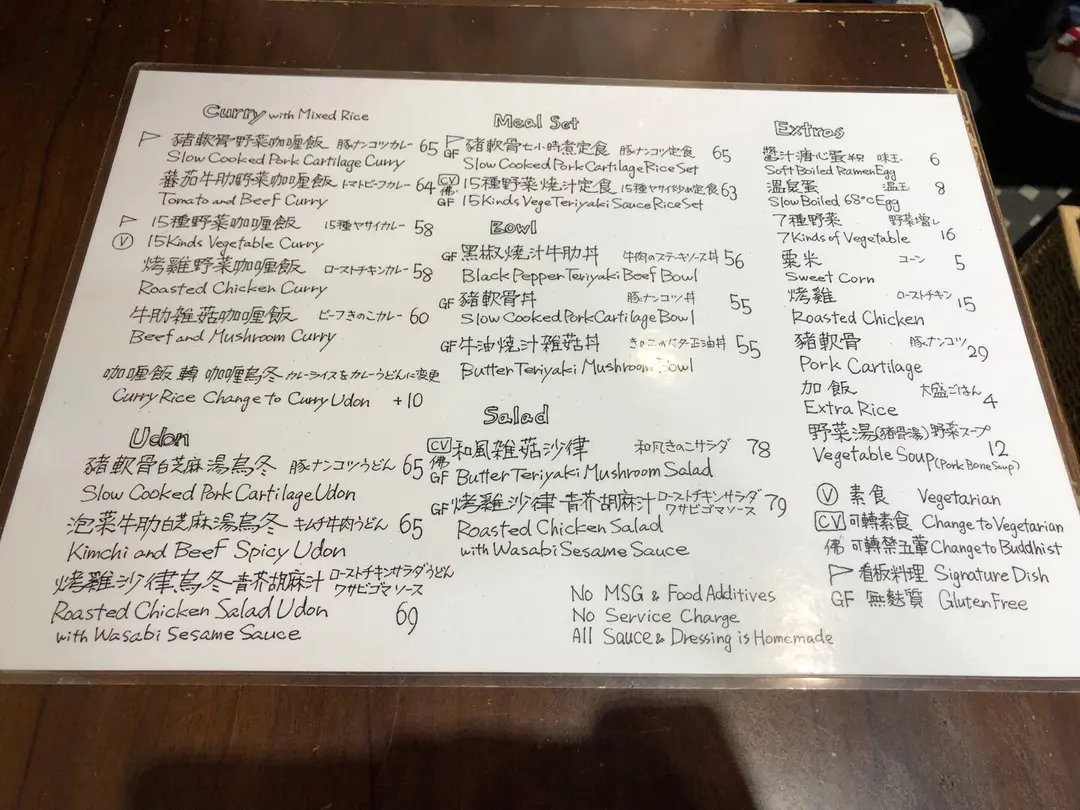 Curry with Mixed Rice
豬軟骨野菜咖喱飯 豚ナンコツカレー 65
Slow Cooked Pork Cartilage Curry
蕃茄牛肋野菜咖喱飯 トマトビーフカレー 64
Tomato and Beef Curry
15種野菜咖喱飯 15種ヤサイカレー 58
V 15Kinds Vegetable Curry
烤雞野菜咖喱飯 ローストチキンカレー 58
Roasted Chicken Curry
牛肋雜菇咖喱飯 ビーフきのこカレー 60
Beef and Mushroom Curry
咖喱飯 轉 咖喱烏冬 カレーライスをカレーうどんに変更
Curry Rice Change to Curry Udon +10
Udon
豬軟骨白芝麻湯烏冬 豚ナンコツうどん 65
Slow Cooked Pork Cartilage Udon
泡菜牛肋白芝麻湯烏冬 キムチ牛肉うどん 65
Kimchi and Beef Spicy Udon
烤雞沙律烏冬-青芥胡麻汁 ローストチキンサラダうどん
ワサビゴマソース
Roasted Chicken Salad Udon 69
with Wasabi Sesame Sauce
Meal Set
GF 豬軟骨七小時煮定食 豚ナンコツ定食 65
Slow Cooked Pork Cartilage Rice Set
CV 佛 15種野菜燒汁定食 15種ヤサイ炒め定食 63
GF 15Kinds Vege Teriyaki Sauce Rice Set
Bowl
GF 黑椒燒汁牛肋丼 牛肉のステーキソース丼 56
Black Pepper Teriyaki Beef Bowl
GF 豬軟骨丼 豚ナンコツ丼 55
Slow Cooked Pork Cartilage Bowl
GF 牛油燒汁雜菇丼 きのこのバター正油丼 55
Butter Teriyaki Mushroom Bowl
Salad
CV 佛 和風雜菇沙律 和風きのこサラダ 78
GF Butter Teriyaki Mushroom Salad
GF 烤雞沙律-青芥胡麻汁 ローストチキンサラダ 79
ワサビゴマソース
Roasted Chicken Salad
with Wasabi Sesame Sauce
No MSG & Food Additives
No Service Charge
All Sauce & Dressing is Homemade
Extras
醬汁溏心蛋 味玉 6
Soft Boiled Ramen Egg
溫泉蛋 温玉 8
Slow Boiled 68°C Egg
7種野菜 野菜増し
7 Kinds of Vegetable 16
粟米 コーン 5
Sweet Corn
烤雞 ローストチキン 15
Roasted Chicken
豬軟骨 豚ナンコツ 29
Pork Cartilage
加飯 大盛ごはん 4
Extra Rice
野菜湯(豬骨湯) 野菜スープ 12
Vegetable Soup (Pork Bone Soup)
V 素食 Vegetarian
CV 可轉素食 Change to Vegetarian
佛 可轉禁五葷 Change to Buddhist
看板料理 Signature Dish
GF 無麩質 Gluten Free